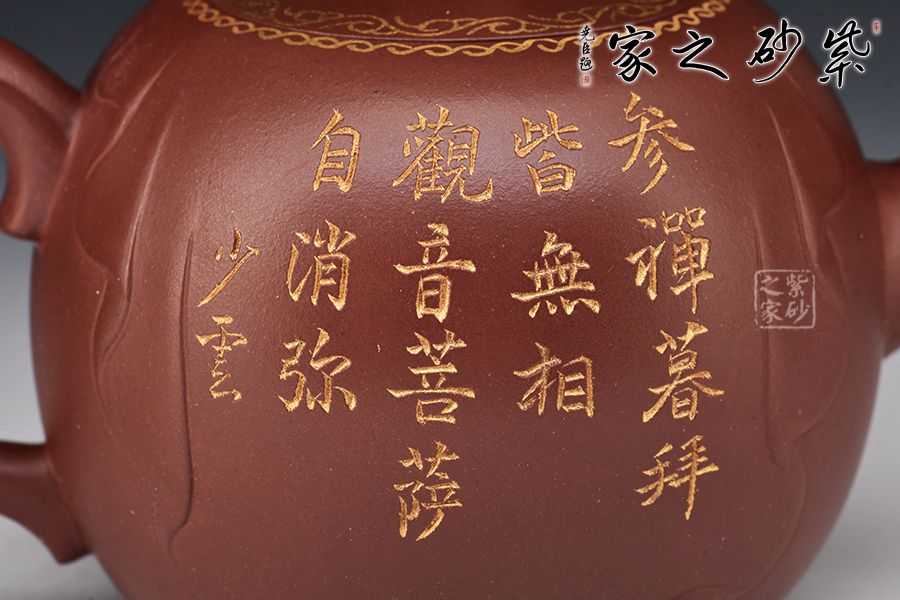 紫砂之家
堯臣題
参禪暮拜
皆無相
觀音菩萨
自消弥
少雲
紫砂之家